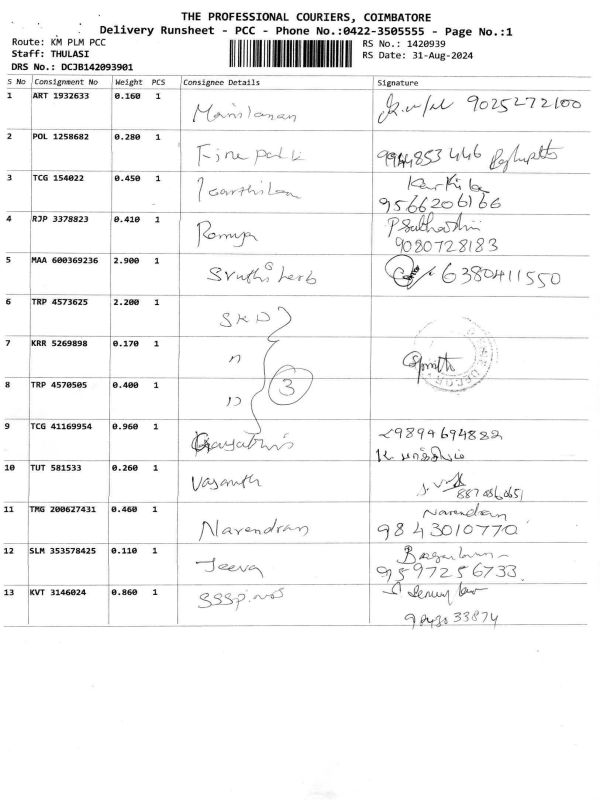 THE PROFESSIONAL COURIERS, COIMBATORE
Delivery Runsheet - PCC - Phone No.:0422-3505555 - Page No.:1
Route: KM PLM PCC
RS No.: 1420939
Staff: THULASI
RS Date: 31-Aug-2024
DRS No.: DCJB142093901
S No Consignment No Weight PCS Consignee Details Signature
1 ART 1932633 0.160 1 9025272100
2 POL 1258682 0.280 1 9944853446
3 TCG 154022 0.450 1
9566206166
4 RJP 3378823 0.410 1 Ramya
9080728183
5 MAA 600369236 2.900 1 Sruthi herb 6380411550
6 TRP 4573625 2.200 1 SKD
7 KRR 5269898 0.170 1 "
8 TRP 4570505 0.400 1 " 3
9 TCG 41169954 0.960 1 9894694882
10 TUT 581533 0.260 1 Vasanth
11 TMG 200627431 0.460 1 Narendran Narendran
9843010770
12 SLM 353578425 0.110 1 Jeeva
9597256733
13 KVT 3146024 0.860 1